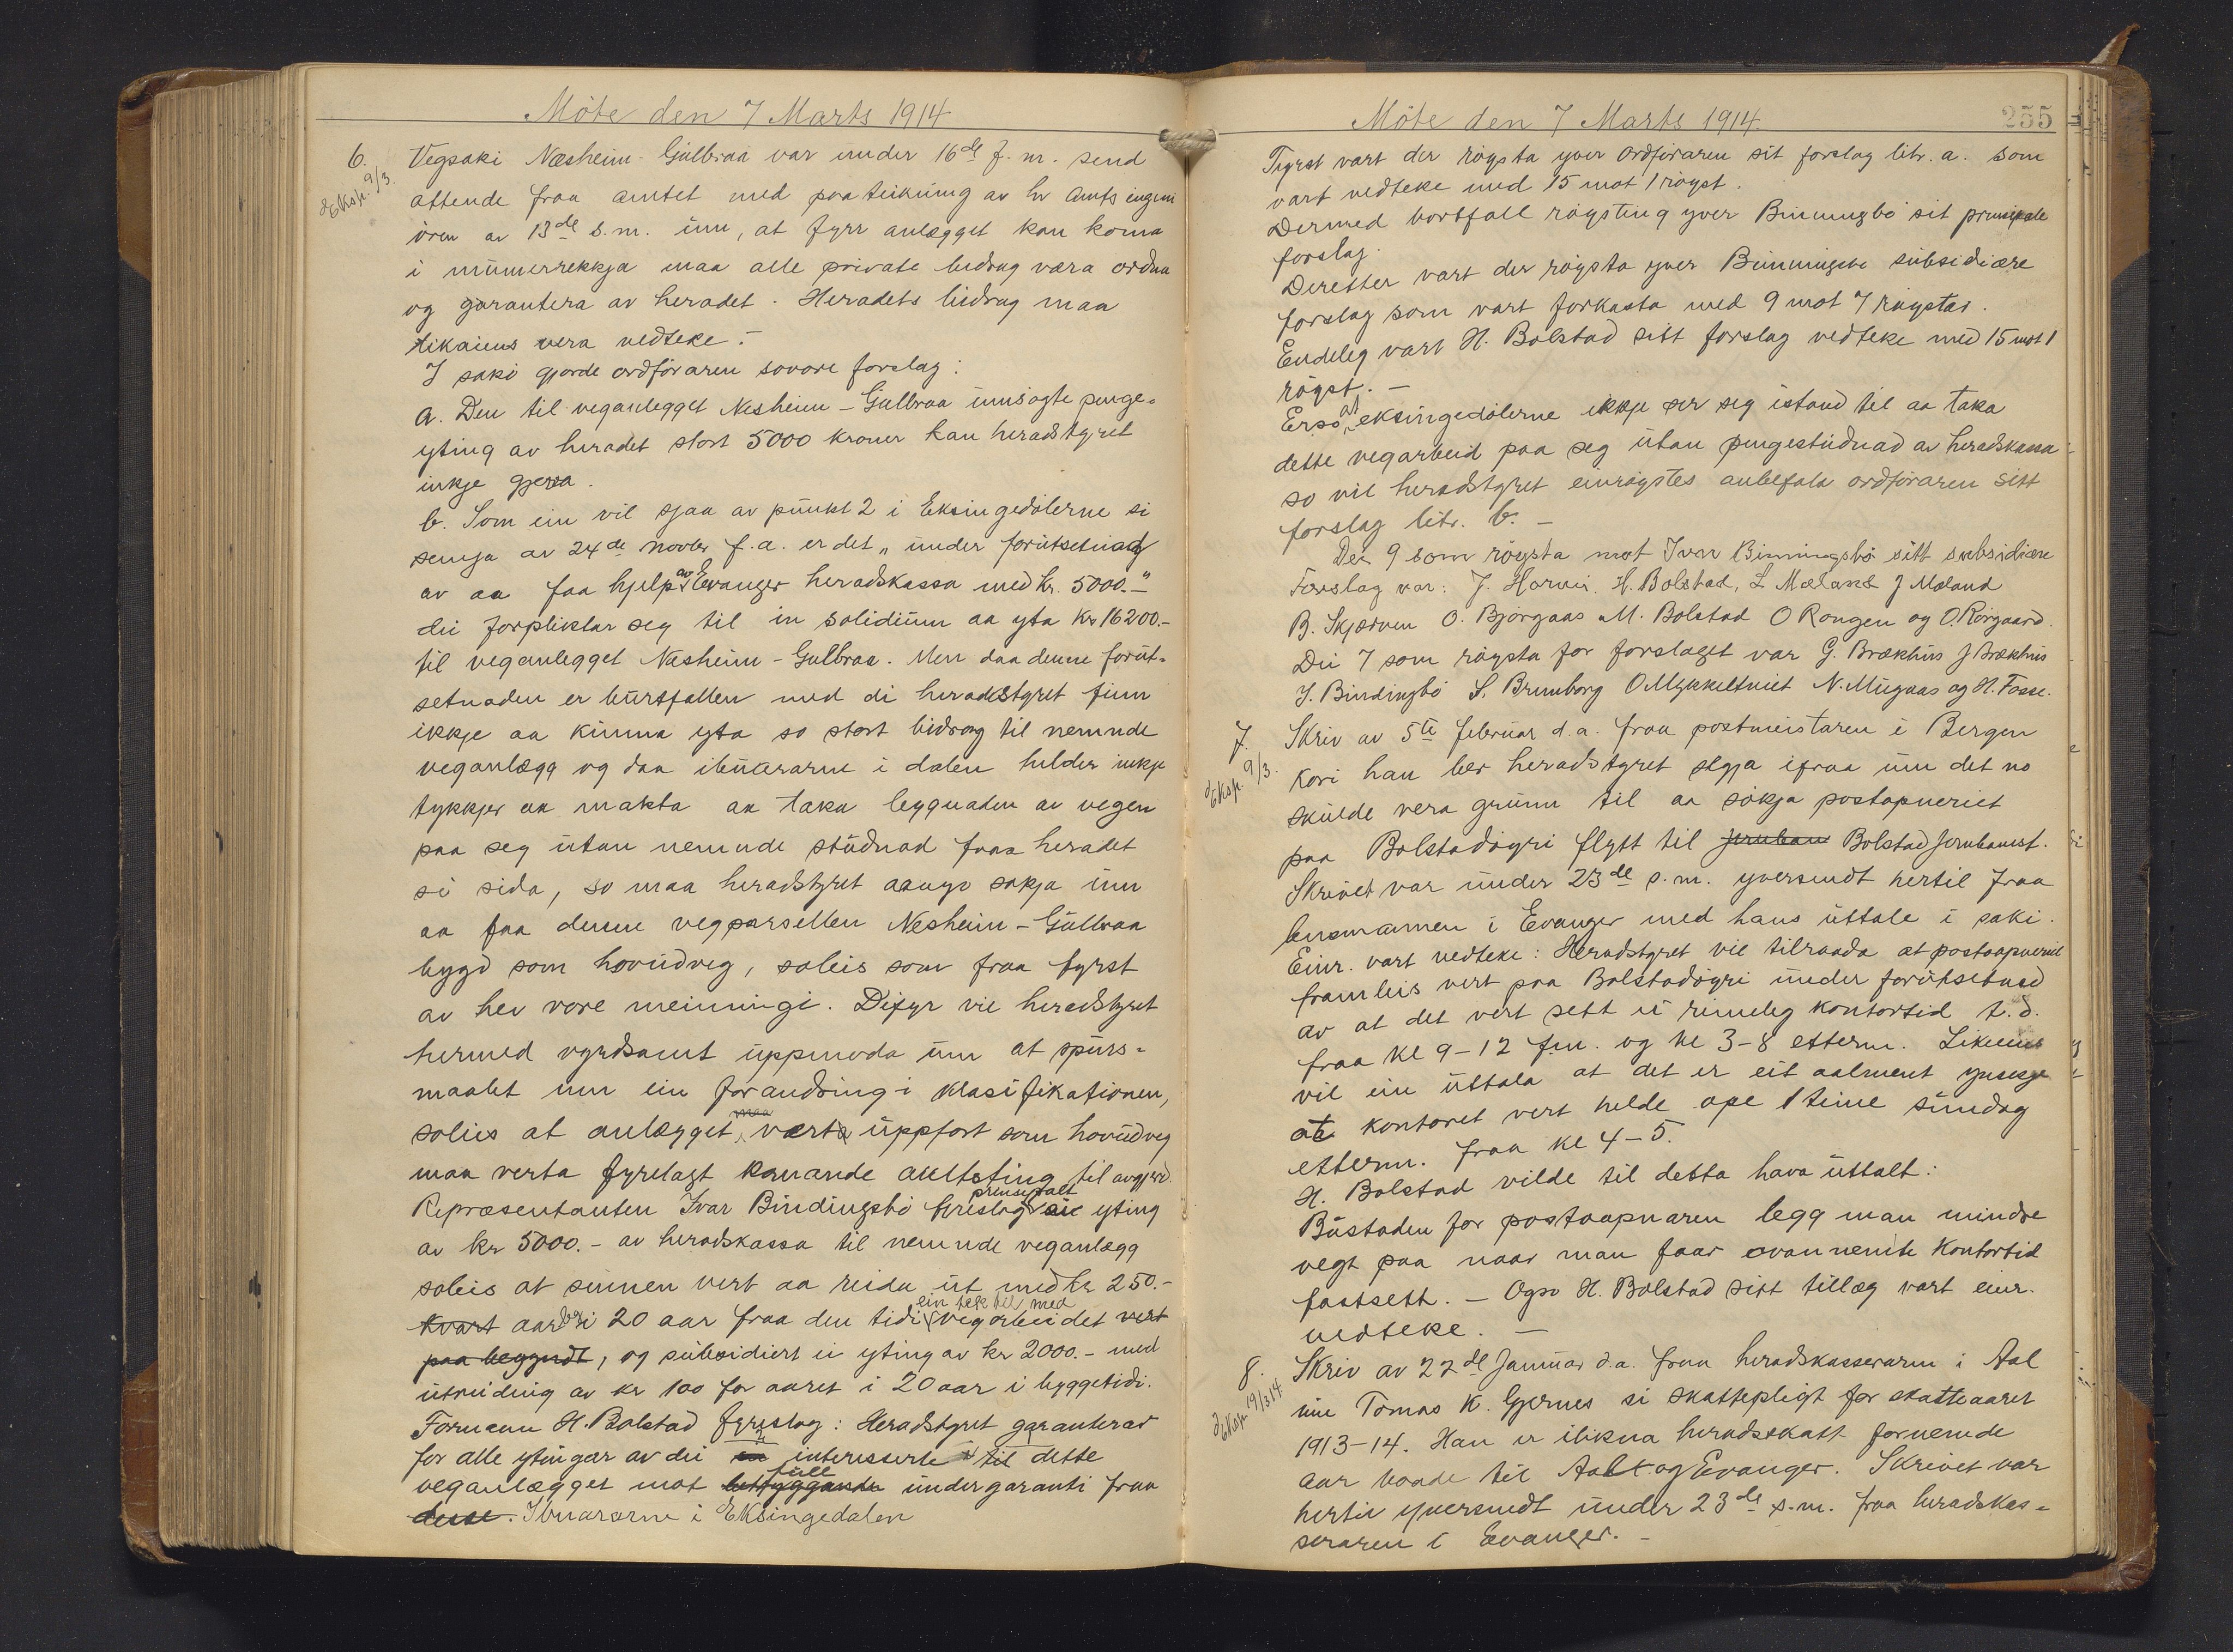 Möte den 7 Marts 1914
6. Vegsaki Næsheim - Gulbraa var under 16de f. m. send
Eksp. 9/3. attende fraa amtet med paateikning av hr amts ingeni
ören av 13de s. m. um, at fyrr anlægget kan koma
i nummerrekkja maa alle private bidrag væra ordna
og garantera av heradet. Heradets bidrag maa
likaieins vera vedteke. -
I saki gjorde ordföraren sovore forslag:
a. Den til veganlegget Nesheim - Gulbraa innsögte penge-
yting av heradet stort 5000 kroner kan heradstyret
inkje gjera.
b. Som ein vil sjaa av punkt 2 i Eksingedölerne si
semja av 24de novbr f. a. er det „under forutsetnad
av aa faa hjelp av Evanger heradskassa med kr. 5000.-"
dei forpliktar seg til in solidum aa yta Kr 16200.-
til veganlegget Næsheim - Gulbraa. Men daa denne forut-
setnaden er burtfallen med di heradstyret finn
ikkje aa kunna yta so stort bidrag til nemnde
veganlægg og daa ibuararne i dalen helder inkje
tykkjer aa makta aa taka byggnaden av vegen
paa seg utan nemnde studnad fraa heradet
si sida, so maa heradstyret aanyo sökja um
aa faa denne vegparsellen Nesheim - Gulbraa
bygd som hovudveg, soleis som fraa fyrst
av hev vore meiningi. Difyr vil heradstyret
hermed vyrdsamt uppmoda um at spurs-
maalet um ein forandring i klasifikationen,
soleis at anlægget maa verta uppfört som hovudveg
maa verta fyrelagt komande amtsting til avgjerd.
Repræsentanten Ivar Bindingsbö fyreslog prinsepalt ei yting
av kr 5000.- av heradskassa til nemnde veganlægg
soleis at summen vert aa reida ut med kr 250.-
kvart aar i 20 aar fraa den tidi ein tek til med vegarbeidet vert
paa begyndt, og subsidiert ei yting av kr 2000.- med
utreiding av kr 100 for aaret i 20 aar i byggetidi.
Formann H. Bolstad fyreslog: Heradstyret garanterar
for alle ytingar av dei interesserte til dette
veganlægget mot full betryggande undergaranti fraa
desse. Ibuararne i Eksingedalen

Möte den 7 Marts 1914. 255
Fyrst vart der röysta yver ordföraren sit forslag litr. a. som
vart vedteke med 15 mot 1 röyst.
Dermed bortfall röysting yver Binningsbö sit prinsipale
forslag.
Deretter vart der röysta yver Binningsbö subsidiære
forslag som vart forkasta med 9 mot 7 röystar.
Endeleg vart H. Bolstad sitt forslag vedteke med 15 mot 1
röyst. -
Er so at eksingedölerne ikkje ser seg istand til aa taka
dette vegarbeid paa seg utan pengestudnad av heradskassa
so vil heradstyret einröystes anbefala ordföraren sitt
forslag litr. b. -
Dei 9 som röysta mot Ivar Binningsbö sitt subsidiære
Forslag var: J. Horvei, H. Bolstad, L Mæland J Mæland
B. Skjerven O. Bjørgaas M. Bolstad O Rongen og O. Rørgaard.
Dei 7 som röysta for forslaget var G. Brækhus J Brækhus
I. Bindingbö S. Brunborg O Mykkeltveit N. Mugaas og H. Fosse.
7. Skriv av 5te februar d. a. fraa postmeistaren i Bergen
Eksp. 9/3. kori han ber heradstyret segja ifraa um det no
skulde vera grunn til aa sökja postopneriet
paa Bolstadöyri flytt til Jernban Bolstad Jernbanest.
Skrivet var under 23de s. m. yversendt hertil fraa
lensmannen i Evanger med hans uttale i saki.
Einr. vart vedteke: Heradstyret vil tilraada at postaapneriet
framleis vert paa Bolstadöyri under forutsetnad
av at det vert sett ei rimeleg kontortid t. d.
fraa kl 9-12 fm. og kl 3-8 efterm. Likeeins
vil ein uttala at det er eit aalment ynskje
at kontoret vert helde ope 1 teime sundag
etterm. fraa kl 4-5.
H. Bolstad vilde til detta hava uttalt:
Bustaden for postaapnaren legg man mindre
vegt paa naar man faar ovannemte kontortid
fastsett. - Ogso H. Bolstad sitt tillæg vart einr.
vedteke. -
8. Skriv av 22de Januar d. a. fraa heradskasseraren i Aal
Eksp. 19/3 14. um Tomas K. Gjernes si skattepligt for skatteaaret
1913-14. Han er ilikna heradsskatt fornemde
aar baade til Aal og Evanger. Skrivet var
hertil yversendt under 23de s. m. fraa heradskas-
seraren i Evanger. -